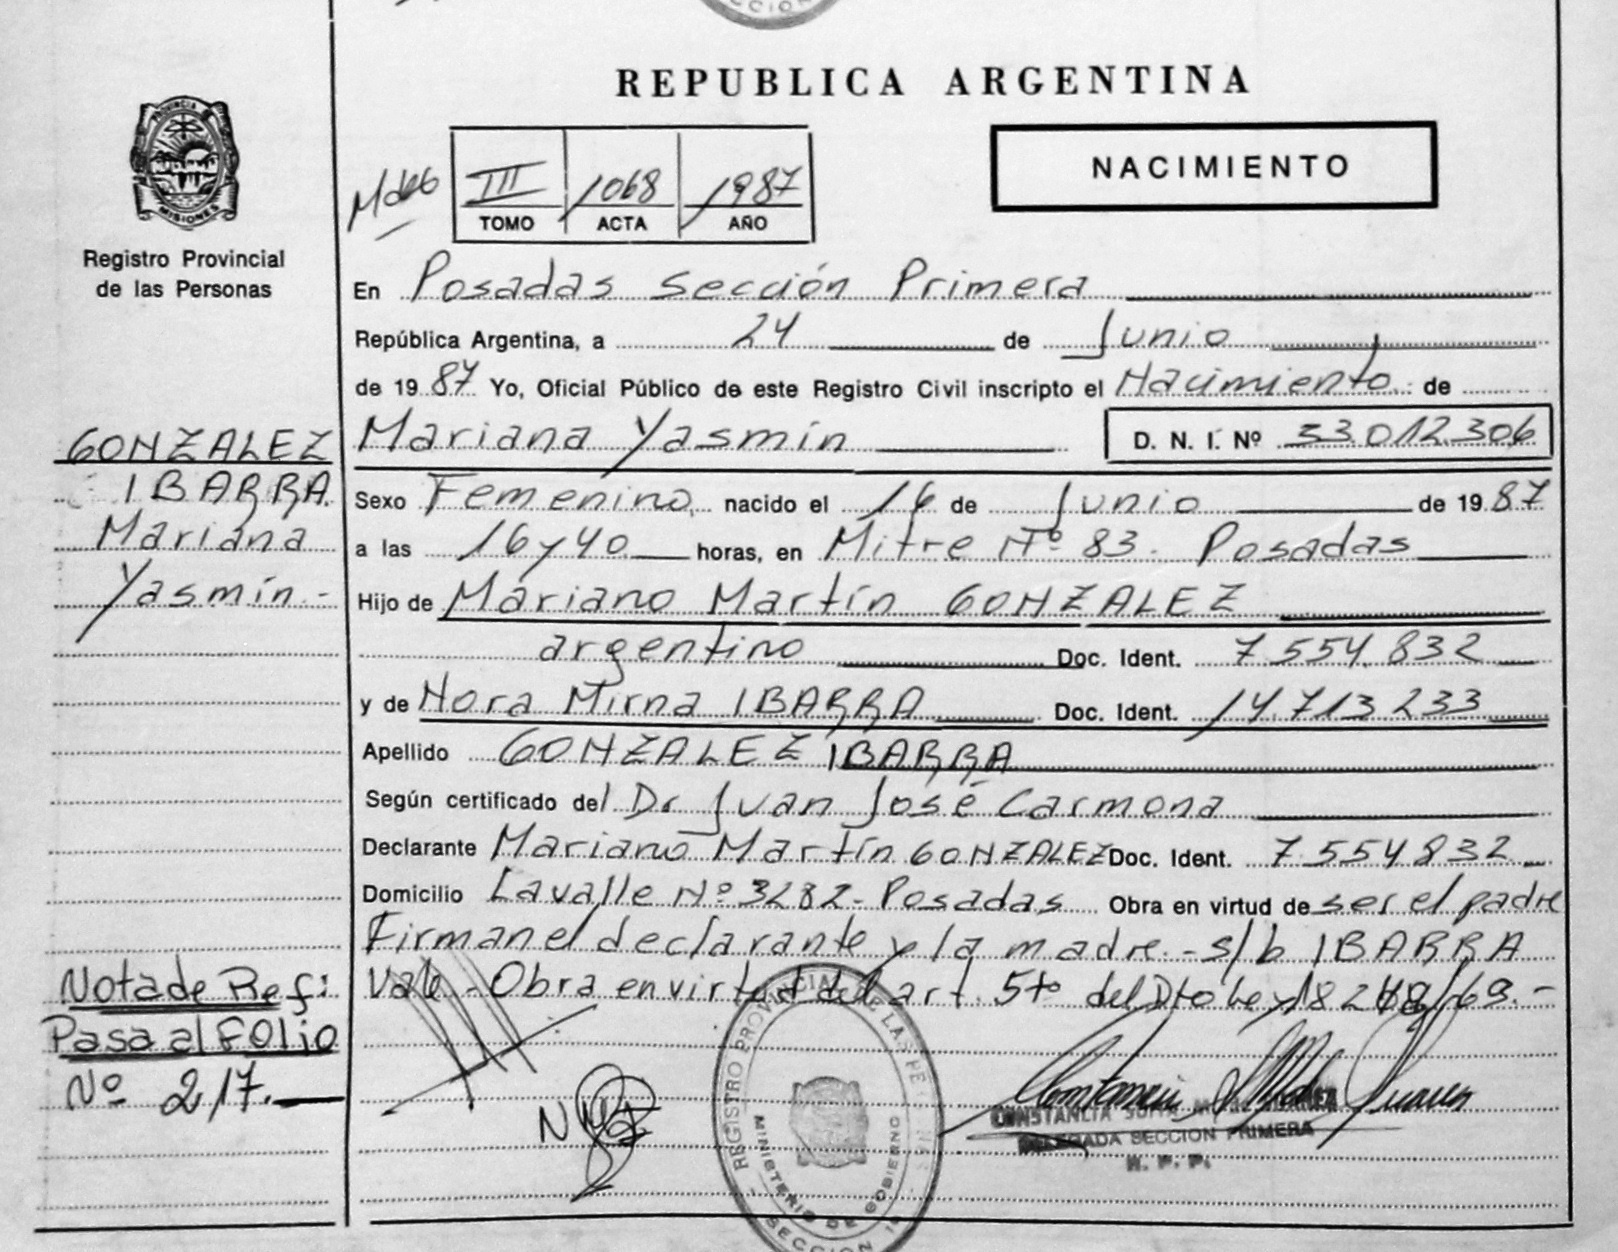 SECCION
REPUBLICA ARGENTINA
PROVINCIA
MISIONES
Registro Provincial
de las Personas
III 1068 1987
TOMO ACTA AÑO
NACIMIENTO
En Posadas Sección Primera
República Argentina, a 24 de Junio
de 1987 Yo, Oficial Público de este Registro Civil inscripto el Nacimiento de
Mariana Yasmín D. N. I. Nº 33.012.306
GONZALEZ
IBARRA
Mariana
Yasmín.-
Sexo Femenino, nacido el 16 de Junio de 1987
a las 16 y 40 horas, en Mitre Nº 83. Posadas
Hijo de Mariano Martín GONZALEZ
argentino Doc. Ident. 7.554.832
y de Nora Mirna IBARRA Doc. Ident. 14.713.233
Apellido GONZALEZ IBARRA
Según certificado del Dr Juan José Carmona
Declarante Mariano Martín GONZALEZ Doc. Ident. 7.554.832
Domicilio Lavalle Nº 3282- Posadas Obra en virtud de ser el padre
Firman el declarante y la madre.- s/b IBARRA
Vale.- Obra en virtud del art. 5to del Dto Ley 18248/69.-
Nota de Ref:
Pasa al FOlio
Nº 217.
REGISTRO PROVINCIAL DE LAS PERSONAS
MINISTERIO DE GOBIERNO
SECCION 1ª
CONSTANCIA
DELEGADA SECCION PRIMERA
R. P. P.